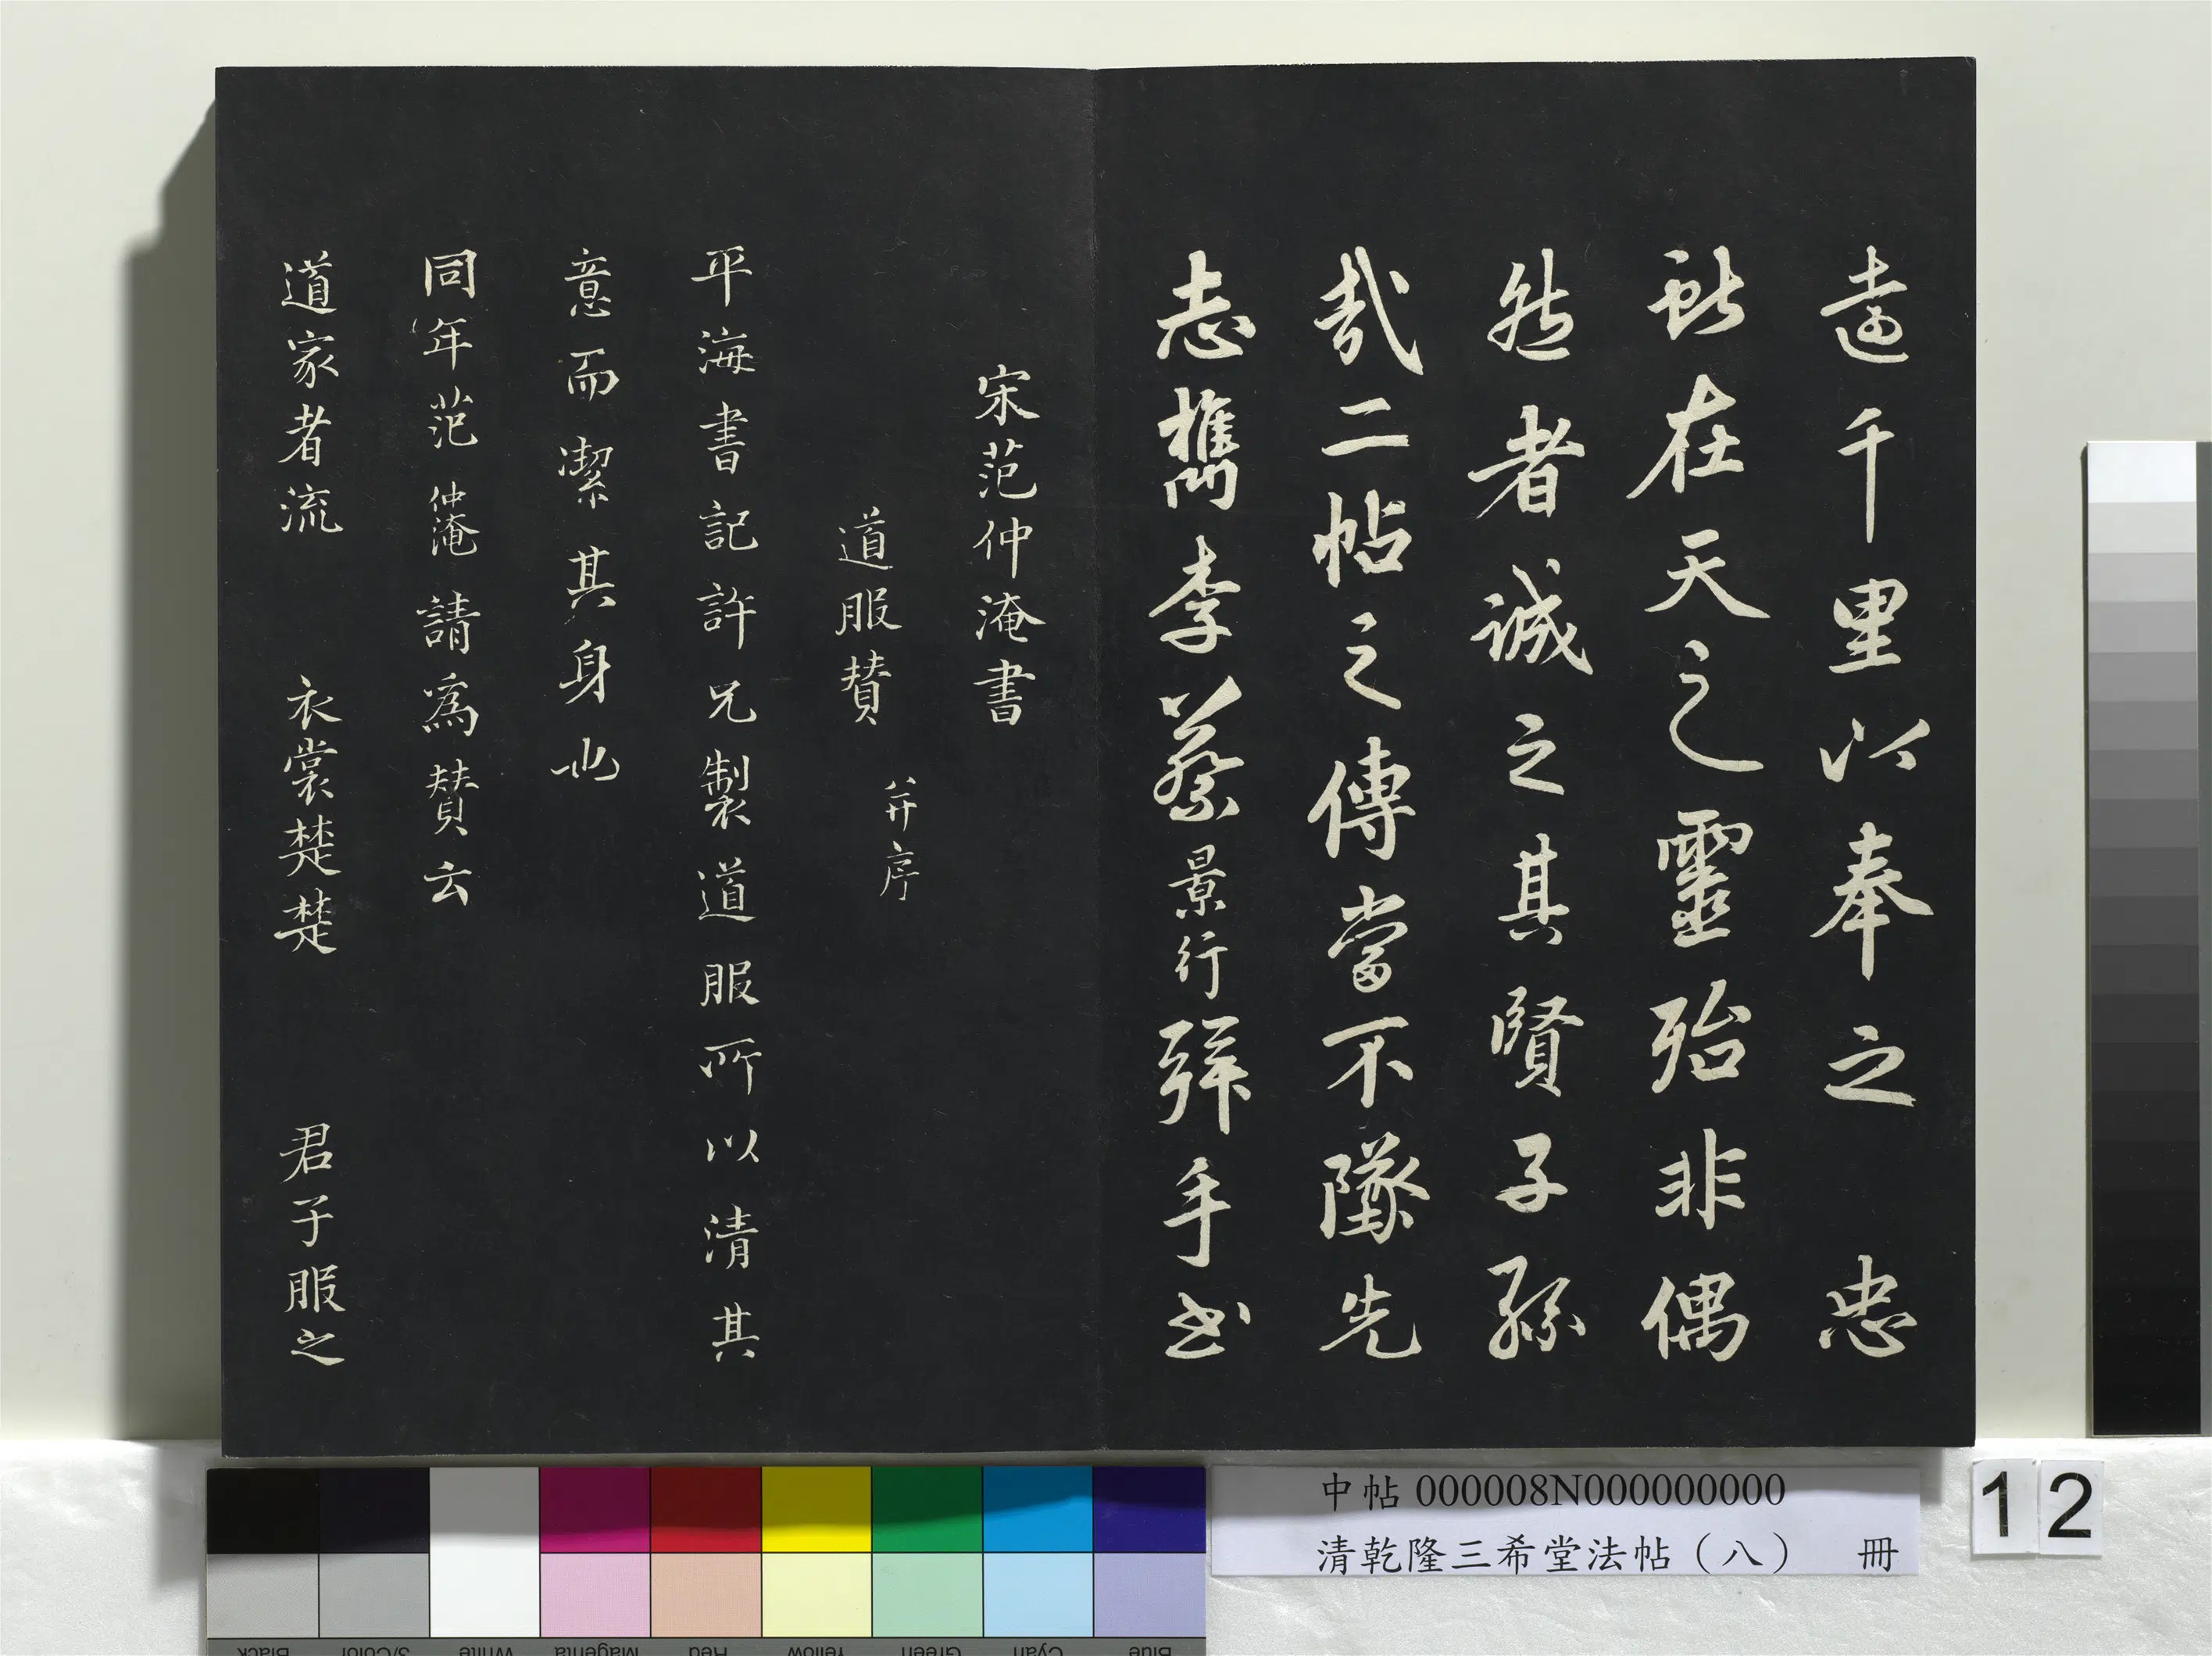 遠千里以奉之　忠
獻在天之靈殆非偶
然者誠之其賢子孫
哉二帖之傳當不墜先
志檇李蔡景行拜手書
宋范仲淹書
道服贊　并序
平海書記許兄製道服所以清其
意而潔其身也
同年范仲淹請為贊云
道家者流　衣裳楚楚　君子服之
中帖 000008N000000000
清乾隆三希堂法帖（八）　冊
12
Blue Cyan Green Yellow Red Magenta White 3/Color Black